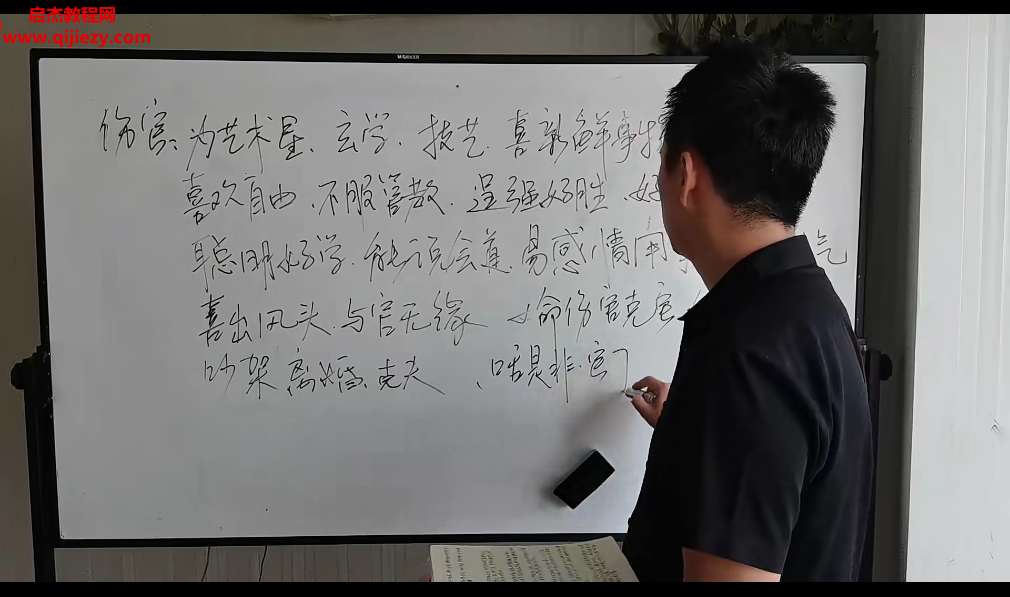 启杰教程网
www.qijiezy.com
伤官:为艺术星、玄学、技艺、喜新鲜事物
喜欢自由、不服管教、逞强好胜、好
聪明好学、能说会道、易感情用 气
喜出风头、与官无缘 女命伤官克官
吵架、离婚、克夫 、口舌是非、官